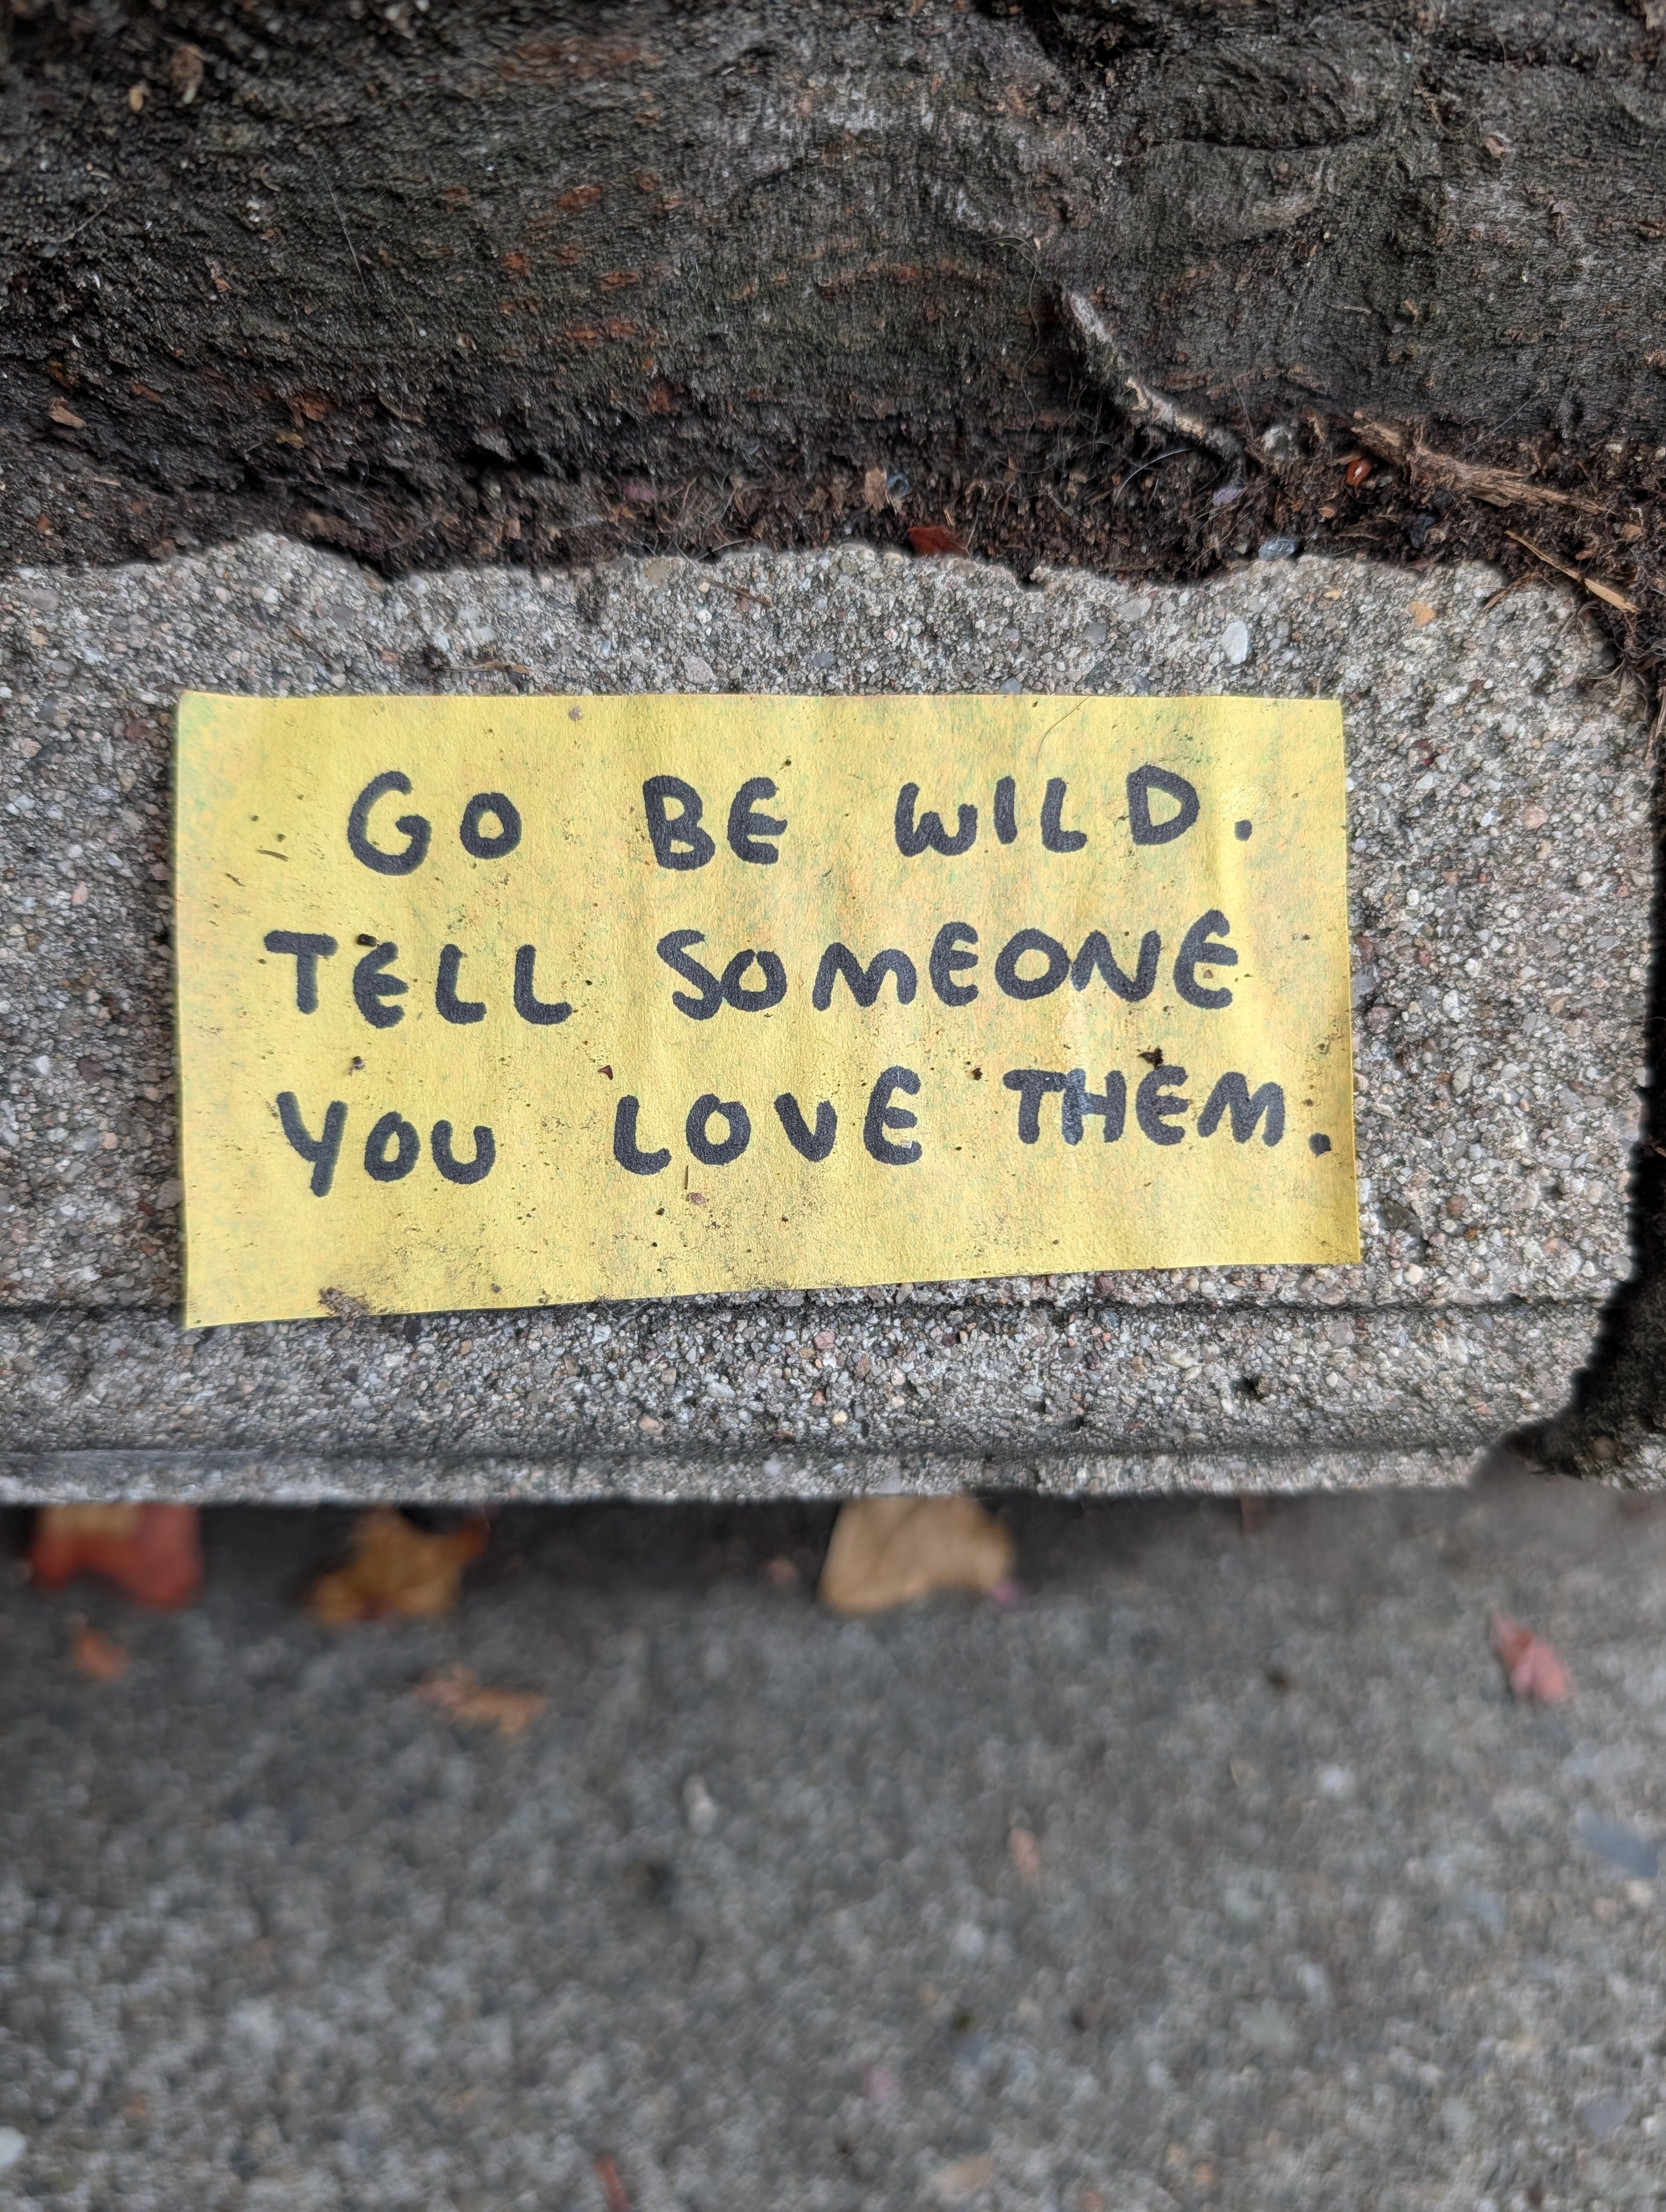 GO BE WILD.
TELL SOMEONE
YOU LOVE THEM.